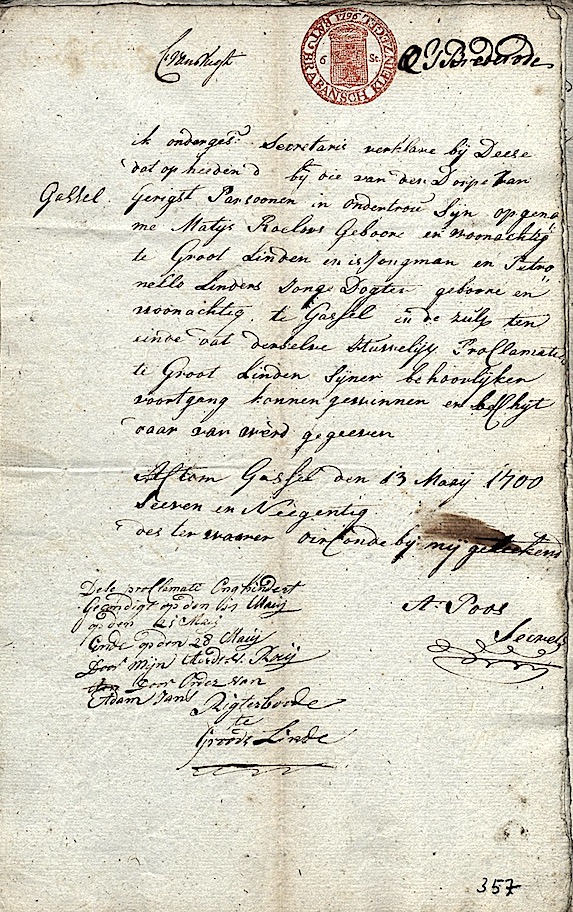 BAT: BRABANSCH KLEIN ZEGEL 1796
6 St:
Q J Brederode
ik onderges: Secretaris verklare bij Deese
dat op heeden d bij die van den Dorpe van
Gassel.
Gerigt Persoonen in ondertrou Sijn opgeno
me Matijs Roelevs Geboore en woonachtig
te Groot Linden en is Jongman en Petro
nella Linders Jonge Dogter geboore en
woonachtig te Gassel in de zulx ten
einde dat derselve Huwelijx Proclamatie
te Groot Linden Sijner behoorlijken
voortgang konnen gewinnen en bescheyt
daar van werd gegeeven
Actom Gassel den 13 Maij 1700
Seeven en Neegentig
des ter waarer oirconde bij mij geteekend
A Poos
Secrets
Dese proclamatie Onghindert
Geendigt op den 14 Maij
op den 21 Maij
Ende op den 28 Maij
Door Mijn
Door Order van
Adam Jans
Rigtersboode
te
Groode Linde
357